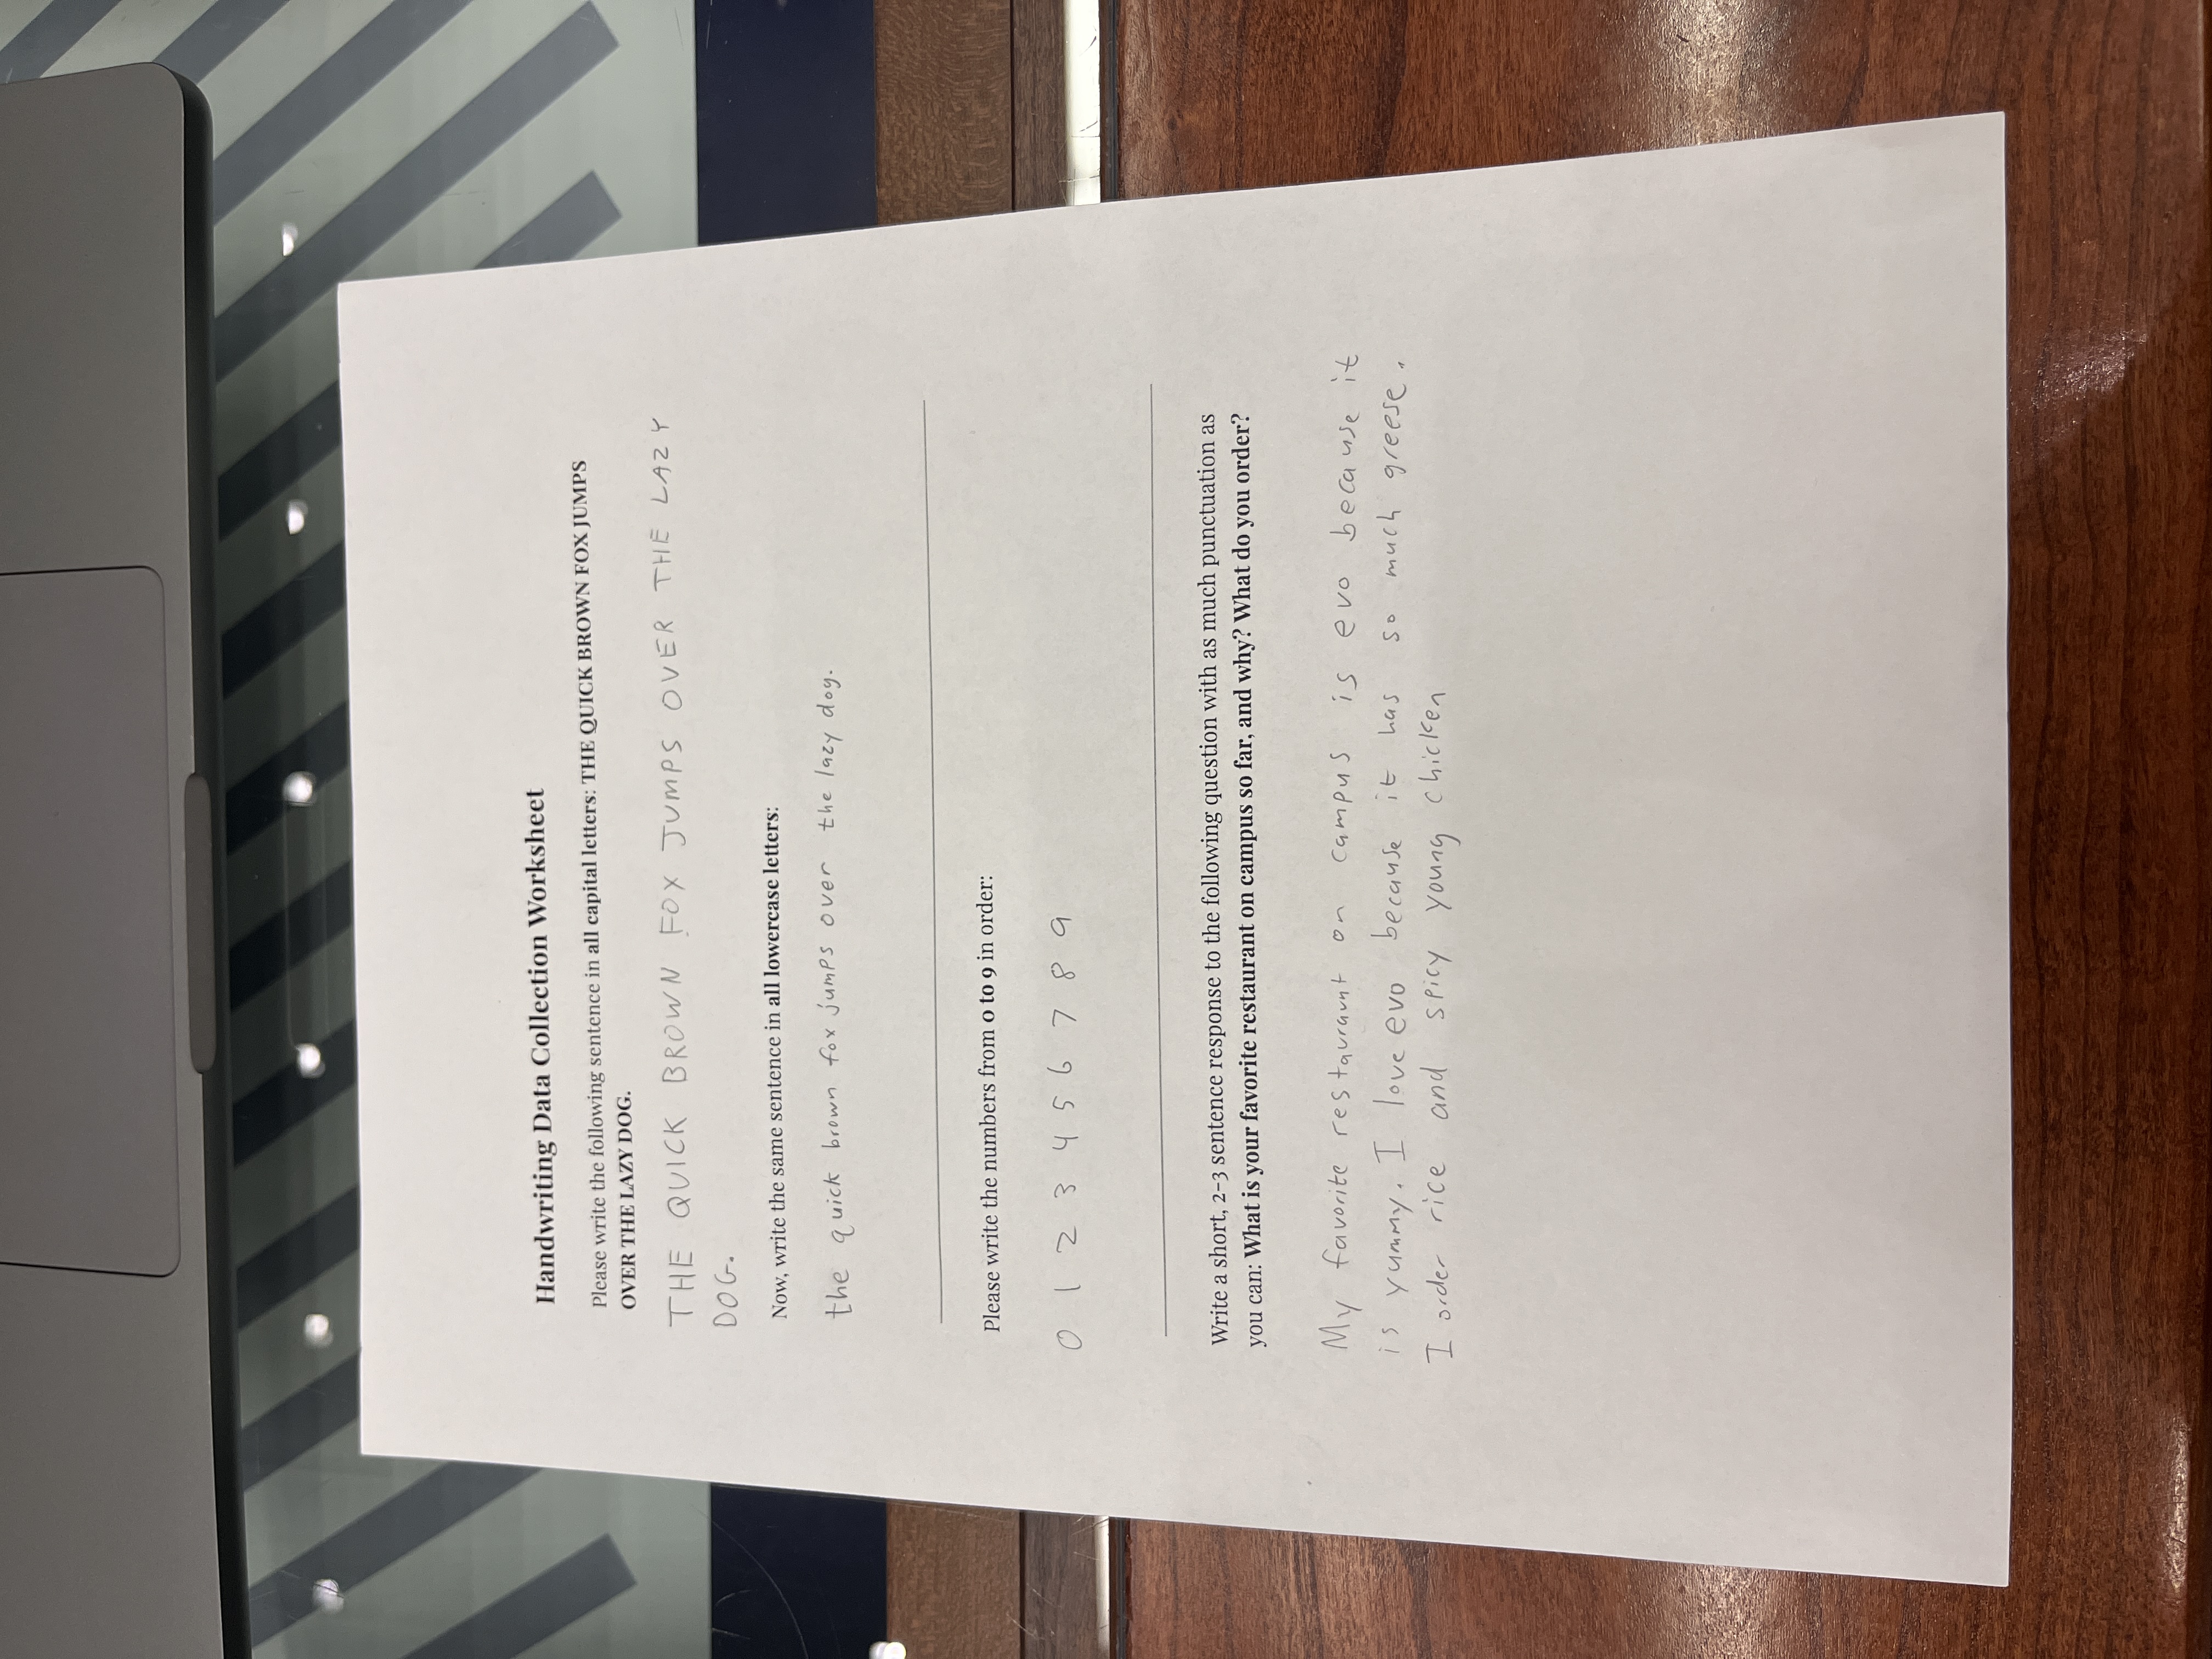 Handwriting Data Collection Worksheet
Please write the following sentence in all capital letters: THE QUICK BROWN FOX JUMPS
OVER THE LAZY DOG.
THE QUICK BROWN FOX JUMPS OVER THE LAZY
DOG.
Now, write the same sentence in all lowercase letters:
the quick brown fox jumps over the lazy dog.
Please write the numbers from 0 to 9 in order:
0 1 2 3 4 5 6 7 8 9
Write a short, 2-3 sentence response to the following question with as much punctuation as
you can: What is your favorite restaurant on campus so far, and why? What do you order?
My favorite restauraunt on campus is evo because it
is yummy. I love evo because it has so much greese.
I order rice and spicy young chicken